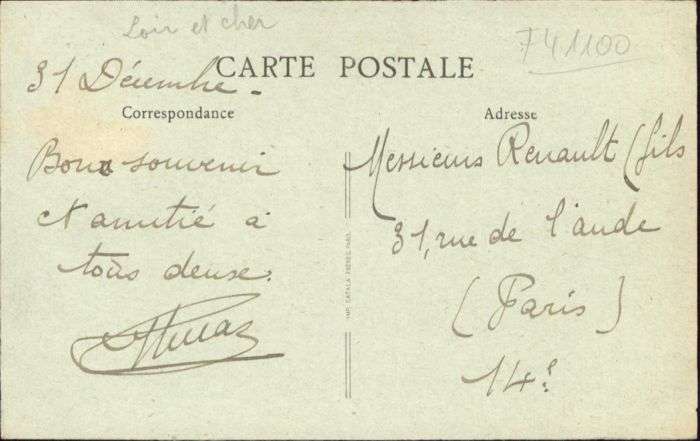 Loir et cher
741100
CARTE POSTALE
31 Décembre -
Correspondance
Adresse
Bon souvenir
et amitié à
tous deuse.
Messieurs Renault (fils
31, rue de l'aude
(Paris)
14e
IMP. CATALA FRÈRES, PARIS